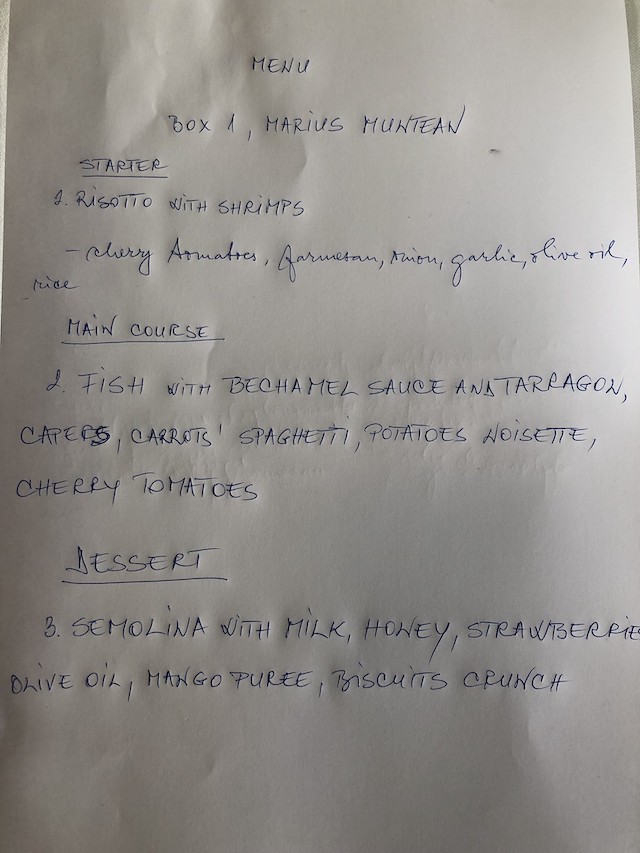 MENU
BOX 1, MARIUS MUNTEAN
STARTER
1. RISOTTO WITH SHRIMPS
- cherry tomatoes, parmesan, onion, garlic, olive oil,
rice
MAIN COURSE
2. FISH WITH BECHAMEL SAUCE AND TARRAGON,
CAPERS, CARROTS' SPAGHETTI, POTATOES NOISETTE,
CHERRY TOMATOES
DESSERT
3. SEMOLINA WITH MILK, HONEY, STRAWBERRIE
OLIVE OIL, MANGO PUREE, BISCUITS CRUNCH